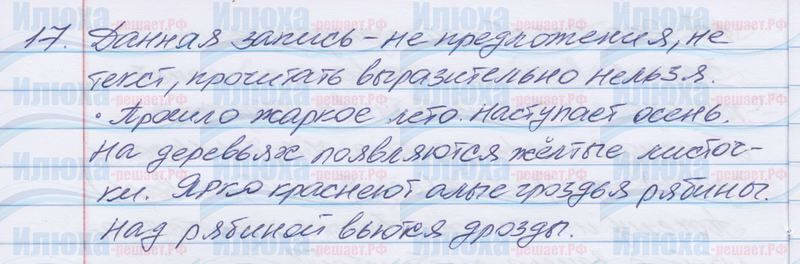 17. Данная запись - не предложения, не
текст, прочитать выразительно нельзя.
· Прошло жаркое лето. Наступает осень.
На деревьях появляются жёлтые листоч-
ки. Ярко краснеют алые гроздья рябины.
Над рябиной вьются дрозды.